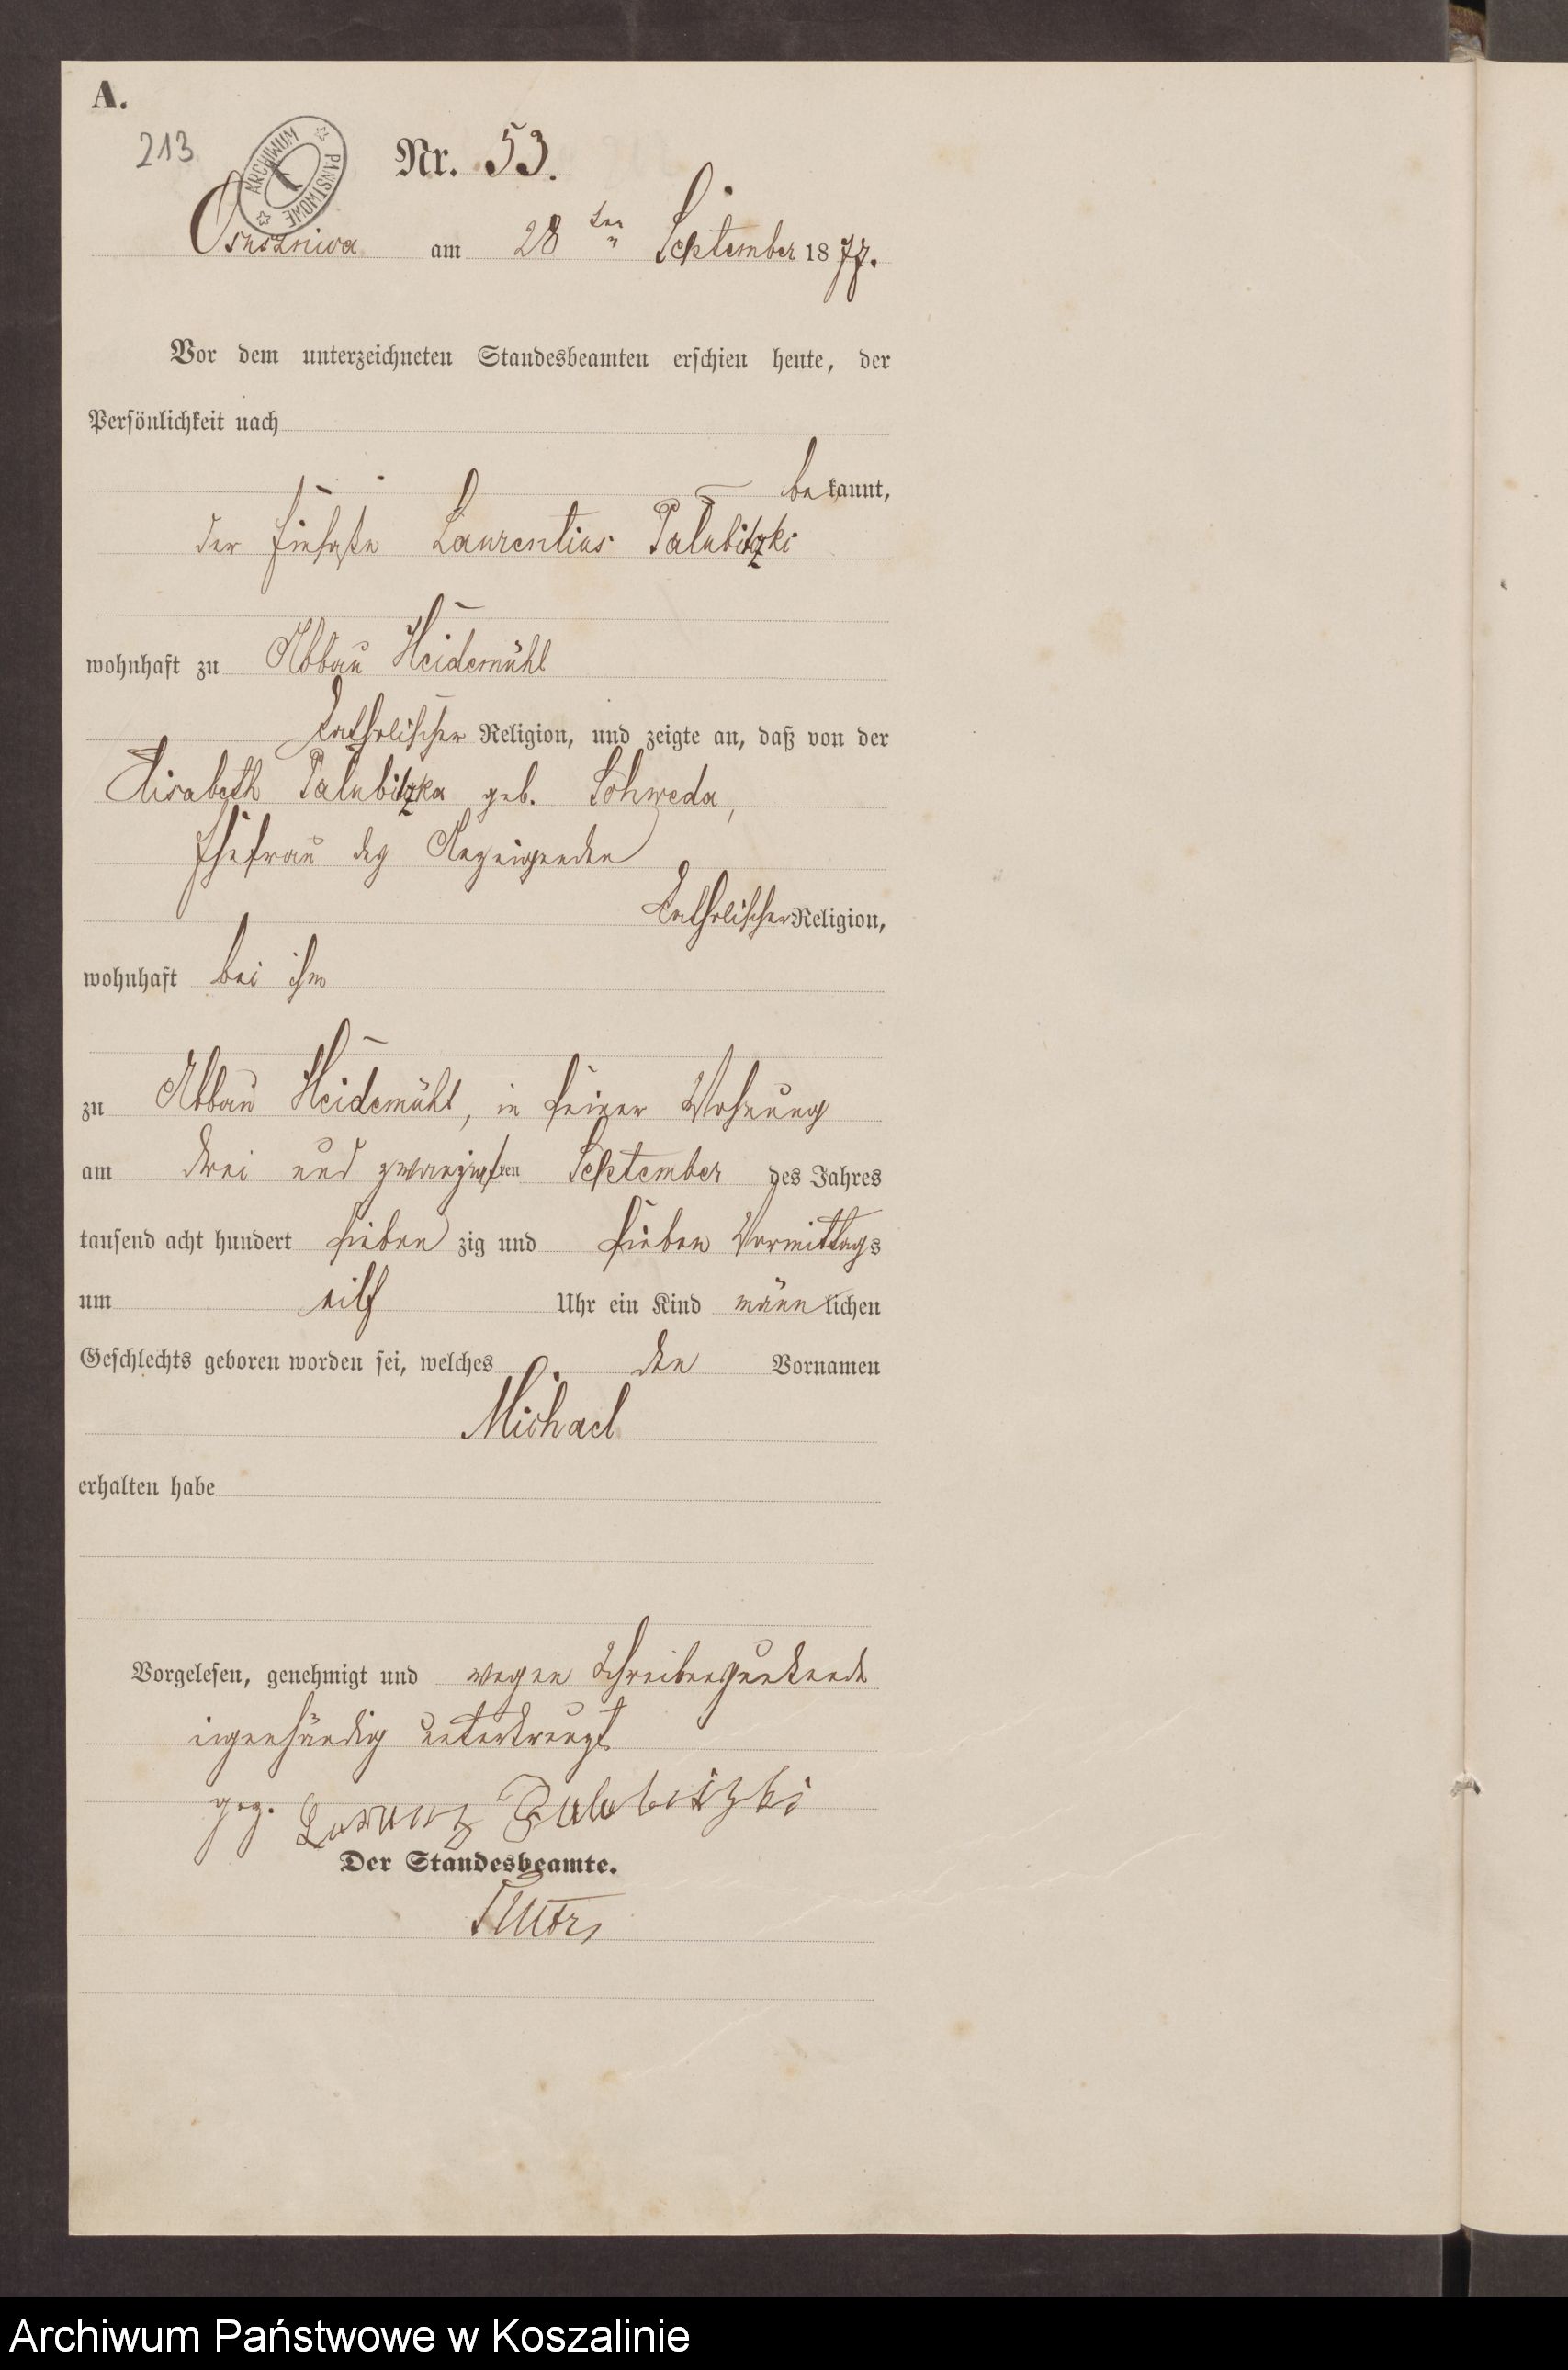 A.
213
ARCHIWUM PAŃSTWOWE
Nr. 53.
Ossusznica am 28 ten September 1877.
Vor dem unterzeichneten Standesbeamten erschien heute, der
Persönlichkeit nach
bekannt,
der Einsaße Laurentius Palubitzki
wohnhaft zu Abbau Heidemühl
katholischer Religion, und zeigte an, daß von der
Elisabeth Palubitzka geb. Schweda,
Ehefrau des Anzeigenden
katholischer Religion,
wohnhaft bei ihm
zu Abbau Heidemühl, in seiner Wohnung
am drei und zwanzigsten September des Jahres
tausend acht hundert siebenzig und sieben Vormittags
um eilf Uhr ein Kind männlichen
Geschlechts geboren worden sei, welches den Vornamen
Michael
erhalten habe
Vorgelesen, genehmigt und wegen Schreibensunkunde
eigenhändig unterkreuzt
gez. Lorenz Palubitzki
Der Standesbeamte.